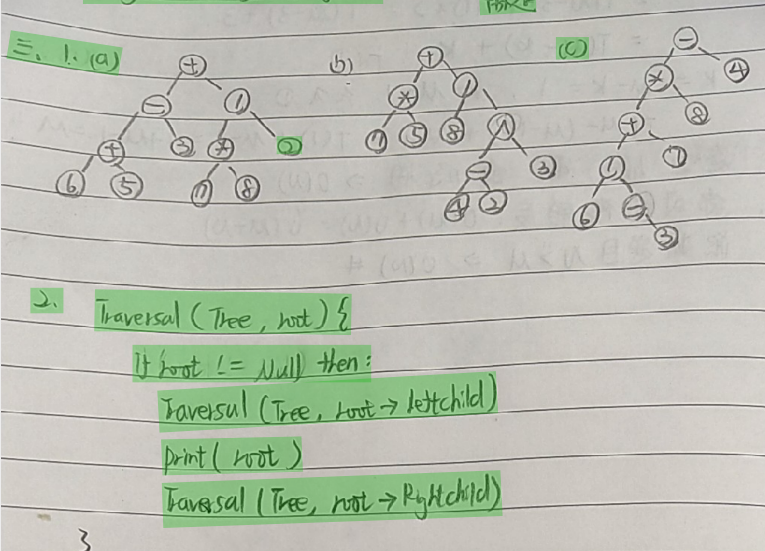 三、1. (a)
b)
(c)
+
- /
+ 3 * 2
6 5 7 8
+
* /
7 5 8 ^
- 3
4 2
-
* 4
+ 8
/ 7
6 -
3
2.
Traversal (Tree, root) {
If root != Null then:
Traversal (Tree, root → leftchild)
print( root )
Traversal (Tree, root → Rightchild)
}